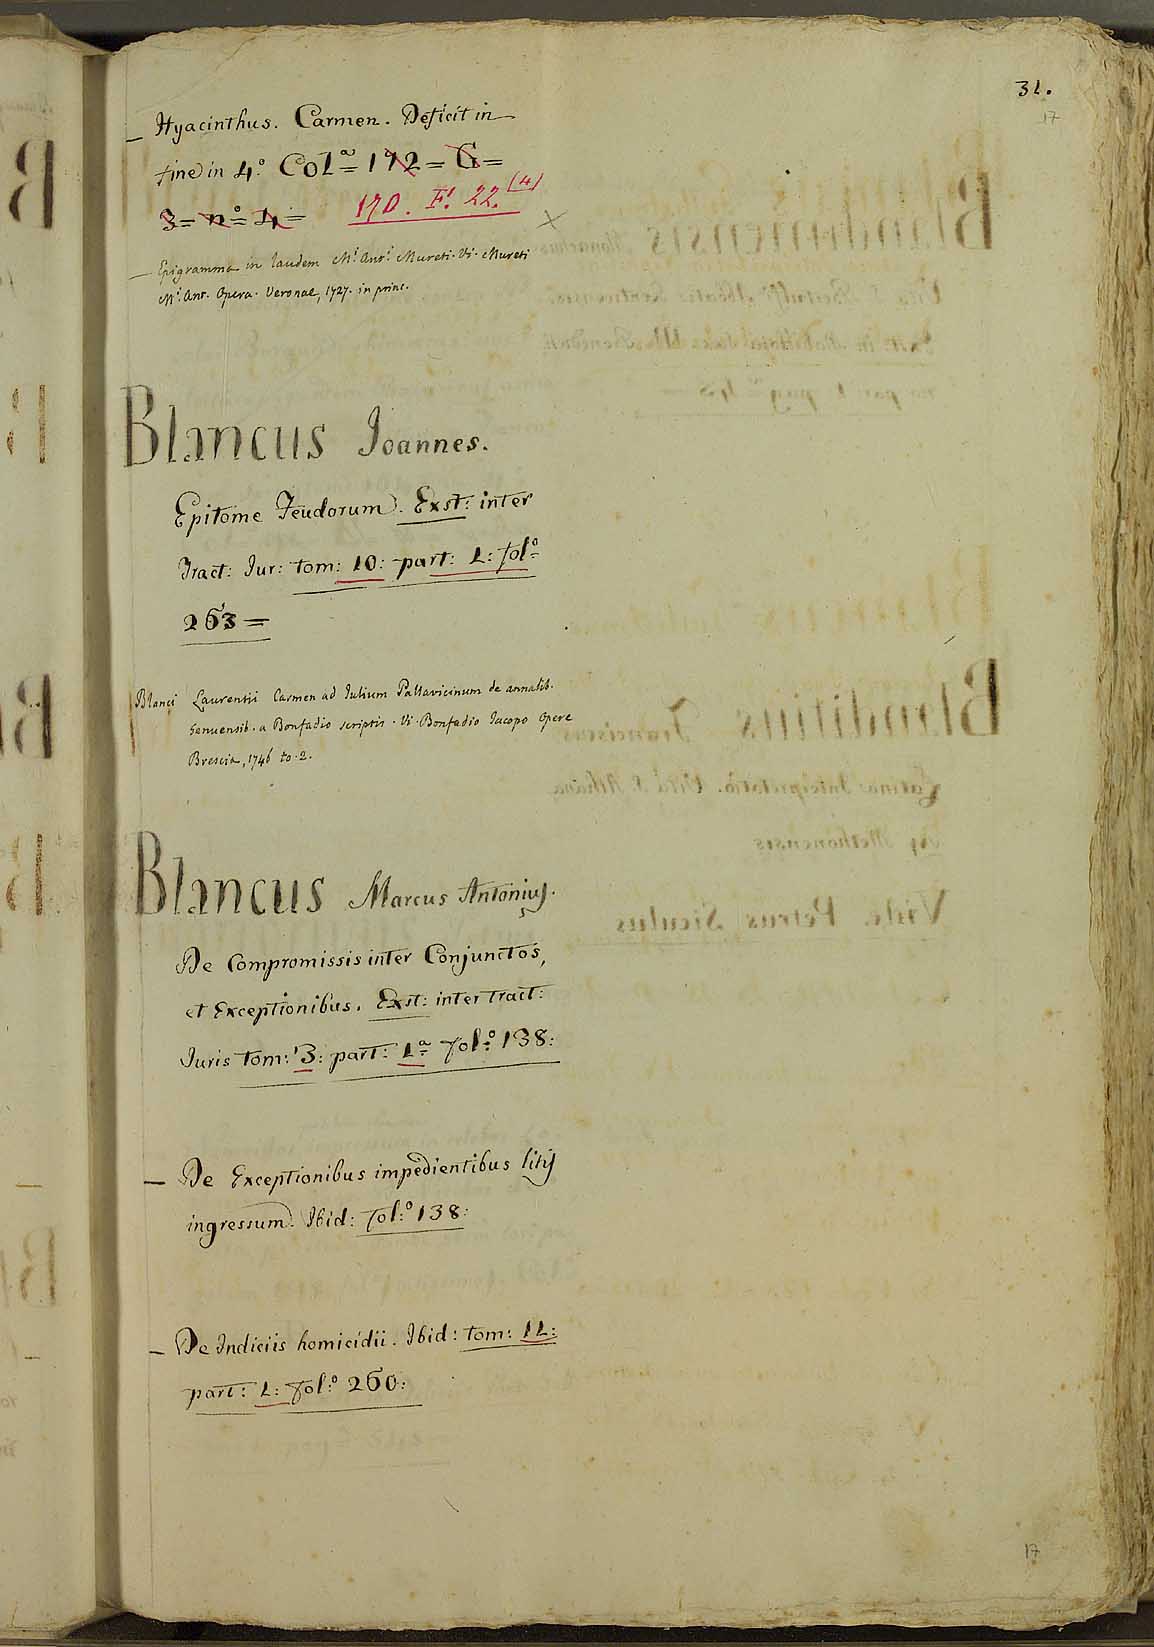 31.
17
— Hyacinthus. Carmen. Deficit in
fine in 4.º Colª= 192 = G =
3 = nº= 4 = 170. F! 22.(4)
— Epigramma in laudem M! Ant! Mureti. Vi. Mureti
M! Ant. Opera. Veronae, 1727. in princ.
Blancus Joannes.
Epitome Feudorum. Exst: inter
Tract: Jur: tom: 10: part: 1: folº=
263 =
Blanci Laurentii Carmen ad Julium Pallavicinum de annalib.
Genuensib. a Bonfadio scriptis. Vi. Bonfadio Jacopo Opere
Brescia, 1746 to. 2.
Blancus Marcus Antonius.
De Compromissis inter Conjunctos,
et Exceptionibus. Exst: inter tract:
Juris tom: 3: part: 1ª= fol:º 138:
— De Exceptionibus impedientibus litis
ingressum. Ibid: fol:º 138:
— De Indiciis homicidii. Ibid: tom: 11:
part: 1: fol:º 260:
17